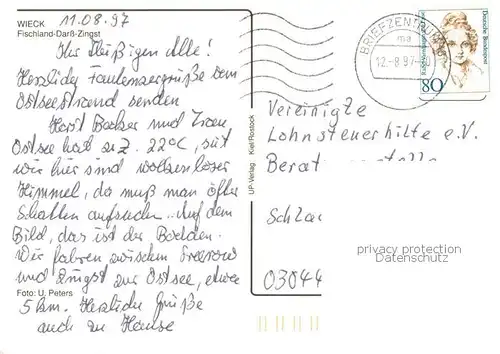 WIECK 11.08.97
Fischland-Darß-Zingst
Ihr Fleißigen Alle!
Herzliche Faulenzergrüße vom
Ostseestrand senden
Horst Becker und Frau
Ostsee hat z.Z. 22°C, seit
wir hier sind wolkenloser
Himmel, da muß man öfter
Schatten aufsuchen. Auf dem
Bild, das ist der Bodden.
Wir fahren zwischen Prerow
und Zingst zur Ostsee, etwa
Foto: U. Peters
5 km. Herzliche Grüße
auch zu Hause
UP-Verlag Kiel/Rostock
BRIEFZENTRUM
ma
12.-8.97
Deutsche Bundespost
80
Vereinigte
Lohnsteuerhilfe e.V.
Beratungsstelle
Schla
privacy protection
Datenschutz
03044